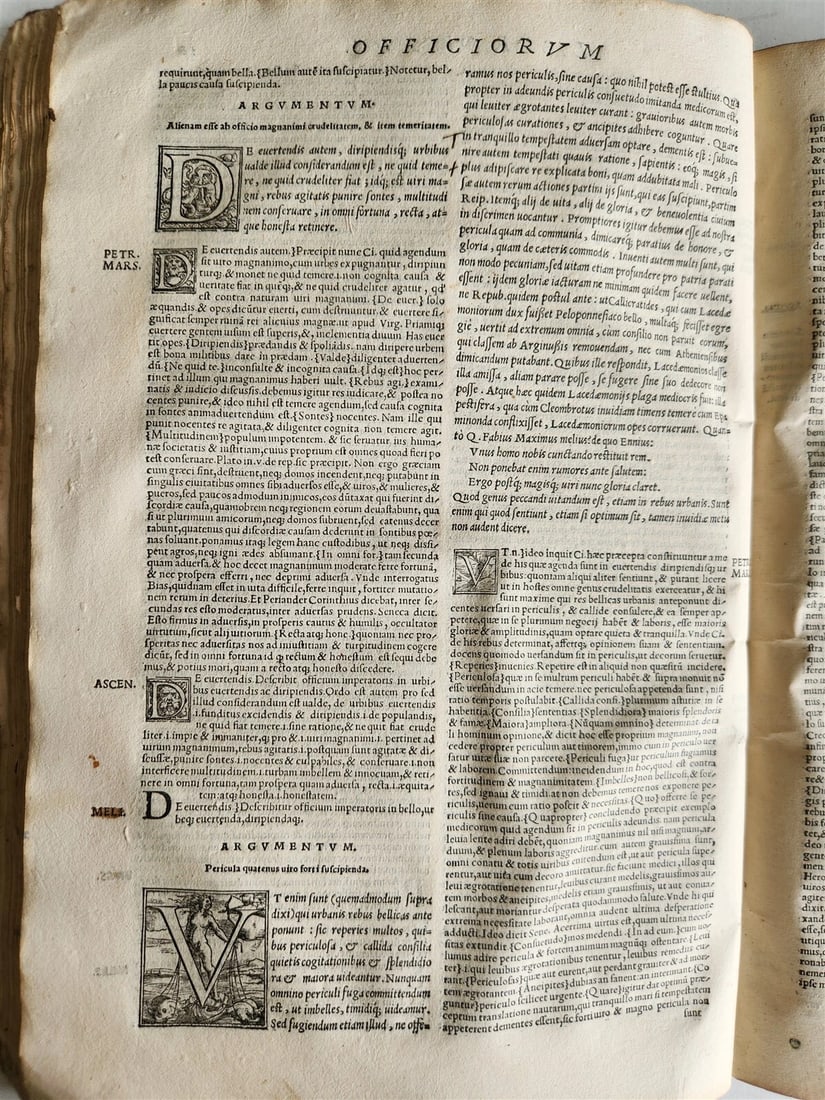 OFFICIORVM
requirunt, quam bella. {Bellum autē ita suscipiatur.} Notetur, bel-
la paucis causa suscipienda.
ARGVMENTVM.
Alienam esse ab officio magnanimi crudelitatem, & item temeritatem.
DE euertendis autem, diripiendisq; urbibus
ualde illud considerandum est, ne quid teme-
re, ne quid crudeliter fiat: idq; est uiri ma-
gni, rebus agitatis punire sontes, multitudi
nem conseruare, in omni fortuna, recta, at-
que honesta retinere.
PETR.
MARS.
DE euertendis autem.} Præcipit nunc Ci. quid agendum
sit uiro magnanimo, cum urbes expugnantur, diripiun
turq; & monet ne quid temere .i. non cognita causa &
ueritate fiat in his q; & ne quid crudeliter agatur, qd'
est contra naturam uiri magnanimi. {De euer.} solo
æquandis & opes dicūtur euerti, cum destruūtur. & euertere si-
gnificat semper ruinā rei alicuius magnæ. ut apud Virg. Priamiq;
euertere gentem uisum est superis, &, inclementia diuum Has euer
tit opes. {Diripiendis} prædandis & spoliādis. nam diripere urbem
est bona militibus dare in prædam. {Valde} diligenter aduerten-
dū. {Ne quid te.} inconsulte & incognita causa. {Idq; est} hoc per-
tinet ad illum qui magnanimus haberi uult. {Rebus agi.} exami-
natis & iudicio discussis. debemus igitur res iudicare, & postea no
centes punire, & ideo nihil est temere agendum, sed causa cognita
in sontes animaduertendum est. {Sontes} nocentes. Nam ille qui
punit nocentes re agitata, & diligenter cognita non temere agit.
{Multitudinem} populum impotentem. & sic seruatur ius huma-
næ societatis & iustitiam, cuius proprium est omnes quoad fieri po
test conseruare. Plato in .v. de rep. sic præcipit. Non ergo græciam
cum græci sint, destruent, neq; domos incendent, neq; putabunt in
singulis ciuitatibus omnes sibi aduersos esse, & uiros, & mulieres, &
pueros, sed paucos admodum inimicos, eos dūtaxat qui fuerint di-
scordiæ causa, quamobrem neq; regionem eorum deuastabunt, qua
si ut plurimum amicorum, neq; domos subruent, sed eatenus decer
tabunt, quatenus qui discordiæ causam dederunt in sontibus pœ-
nas soluant. ponamus itaq; legem hanc custodibus, ut neq; dissi-
pent agros, neq; igni ædes absumant. {In omni for.} tam secunda
quam aduersa. & hoc decet magnanimum moderate ferre fortunā,
& nec prospera efferri, nec deprimi aduersa. Vnde interrogatus
Bias, quidnam esset in uita difficile, ferre inquit, fortiter mutatio-
nem rerum in deterius. Et Periander Corinthius dicebat, inter se-
cundas res esto moderatus, inter aduersas prudens. Seneca dicit.
Esto firmus in aduersis, in prosperis cautus & humilis, occultator
uirtutum, sicut alij uitiorum. {Recta atq; hone.} quoniam nec pro-
speritas nec aduersitas nos ad iniustitiam & turpitudinem cogere
dicūt, sed in omni fortuna qd' rectum & honestum est sequi debe
mus, & potius mori, quam a recto atq; honesto discedere.
ASCEN.
DE euertendis. Describit officium imperatoris in urbi-
bus euertendis ac diripiendis. Ordo est autem pro sed
illud considerandum est ualde, de urbibus euertendis
.i. funditus excidendis & diripiendis .i. depopulandis,
ne quid fiat temere .i. sine ratione, & ne quit fiat crude
liter .i. impie & immaniter, q; pro & .i. uiri magnanimi .i. pertinet ad
uirum magnanimum, rebus agitatis .i. postquam sunt agitatæ & di-
scussæ, punire sontes .i. nocentes & culpabiles, & conseruare .i. non
interficere multitudinem .i. turbam imbellem & innocuam, & reti-
nere in omni fortuna, tam prospera quam aduersa, recta .i. æquita-
tem: atq; honesta .i. honestatem.
MELI.
DE euertēdis} Describitur officium imperatoris in bello, ur
beq; euertenda, diripiendaq;.
ARGVMENTVM.
Pericula quatenus uiro forti suscipienda.
VT enim sunt (quemadmodum supra
dixi) qui urbanis rebus bellicas ante
ponunt: sic reperies multos, qui-
bus periculosa, & callida consilia
quietis cogitationibus & splendidio
ra & maiora uideantur. Nunquam
omnino periculi fuga committendum
est, ut imbelles, timidiq; uideamur.
Sed fugiendum etiam illud, ne offe-
ramus nos periculis, sine causa: quo nihil potest esse stultius. Qua
propter in adeundis periculis consuetudo imitanda medicorum est,
qui leuiter ægrotantes leuiter curant: grauioribus autem morbis
periculosas curationes, & ancipites adhibere coguntur. Quare
in tranquillo tempestatem aduersam optare, dementis est: subue-
nire autem tempestati quauis ratione, sapientis: eoq; magis, si
plus adipiscare re explicata boni, quam addubitata mali. Periculo
sæ autem rerum actiones partim ijs sunt, qui eas suscipiunt, partim
Reip. Itemq; alij de uita, alij de gloria, & beneuolentia ciuium
in discrimen uocantur. Promptiores igitur debemus esse ad nostra
pericula quam ad communia, dimicareq; paratius de honore, &
gloria, quam de cæteris commodis. Inuenti autem multi sunt, qui
non modo pecuniam, sed uitam etiam profundere pro patria parati
essent: ijdem gloriæ iacturam ne minimam quidem facere uellent,
ne Repub. quidem postulante: ut Callicratides, qui cum Lacedæ
moniorum dux fuisset Peloponnesiaco bello, multaq; fecisset egre
gie, uertit ad extremum omnia, cum consilio non paruit eorum,
qui classem ab Arginussis remouendam, nec cum Atheniensibus
dimicandum putabant. Quibus ille respondit, Lacedæmonios classe
illa amissa, aliam parare posse, se fugere sine suo dedecore non
posse. Atque hæc quidem Lacedæmonijs plaga mediocris fuit: illa
pestifera, qua cum Cleombrotus inuidiam timens temere cum Epa
minonda conflixisset, Lacedæmoniorum opes corruerunt. Quan-
tò Q. Fabius Maximus melius? de quo Ennius:
Vnus homo nobis cunctando restituit rem.
Non ponebat enim rumores ante salutem:
Ergo postq; magisq; uiri nunc gloria claret.
Quod genus peccandi uitandum est, etiam in rebus urbanis. Sunt
enim qui quod sentiunt, etiam si optimum sit, tamen inuidiæ metu
non audent dicere.
PET
MAR
VT n.} ideo inquit Ci. hæc præcepta constituuntur a me
de his quæ agenda sunt in euertendis diripiendisq; ur
bibus: quoniam aliqui aliter sentiunt, & putant licere
ut in hostes omne genus crudelitatis exerceatur, & hi
sunt maxime qui res bellicas urbanis anteponunt di-
centes uersari in periculis, & callide consulere, & ea semper ap-
petere, quæ in se plurimum negocij habēt & laboris, esse maioris
gloriæ & amplitudinis, quam optare quieta & tranquilla. Vnde Ci.
de his rebus determinat, affertq; opinionem suam & sententiam.
docens quomodo uersandum sit in periculis, ut decorum seruetur.
{Reperies} inuenies. Reperire est in aliquid non quæsitū incidere.
{Periculosa} quæ in se multum periculi habēt & supra monuit nō
esse uersandum in acie temere. nec pericula appetenda sunt, nisi
ratio temporis postulabit. {Callida consi.} plurimum astutiæ in se
habentia. {Consilia} sententias {Splendidiora} maioris splendoris
& famæ. {Maiora} ampliora. {Nūquam omnino} determinat de ta
li hominum opinione, & dicit hoc esse proprium magnanimi, non
cedere propter periculum aut timorem, immo cum in periculo uer
satur uitæ suæ non parcere. {Periculi fuga} fur periculum fugiamus
& laborem. Committendum: incidendum in hoc, quod est contra
fortitudinem & magnanimitatem. {Imbelles} non bellicosi, & for-
tes, sed ignaui & timidi. at non debemus temere nos exponere pe-
riculis, nerum cum ratio poscit & necessitas. {Quo} offerre se pe-
riculis sine causa. {Quapropter} concludendo præcipit exemplo
medicorum quid agendum sit in periculis adeundis. nam pericula
leuia lente adiri debēt, quoniam magnanimus nil nisi magnum, ar-
duum, & plenum laboris aggreditur. cum autem grauissima sunt,
omni conatu & totis uiribus enitendum est, ut aut pericula supe-
rentur, aut uita cum decoro amittatur. sic faciunt medici, illos qui
leui ægrotatione tenentur, leuibus curant medelis, grauissimos au-
tem morbos & ancipites, medelis etiam grauissimis, ut aut conua-
lescant, aut moriantur desperata quodammodo salute. Vnde hi qui
extrema necessitate laborant, omnia audent ultima desperatione
adducti. Ideo dicit Sene. Acerrima uirtus est, quam ultima neces-
sitas extundit. {Consuetudo} mos medendi. {In ad eun.} cum uo-
lumus adire pericula & fortem animum magnūq; ostentare {Leui
ter} .i. qui leuibus ægrotationibus tenentur, leuibus remedijs cu-
rant. {Periculosas} quæ aut curent, aut perdant grauiter & ad mor-
tem ægrotantem. {Ancipites} dubias an sanent an interimant. {Co
guntur} periculo scilicet urgente. {Quare} igitur dat optimū præ-
ceptum translatione nautarum, qui tranquillo mari si tempestatem
appeterent dementes essent, sic forti uiro & magno pericula non
sunt